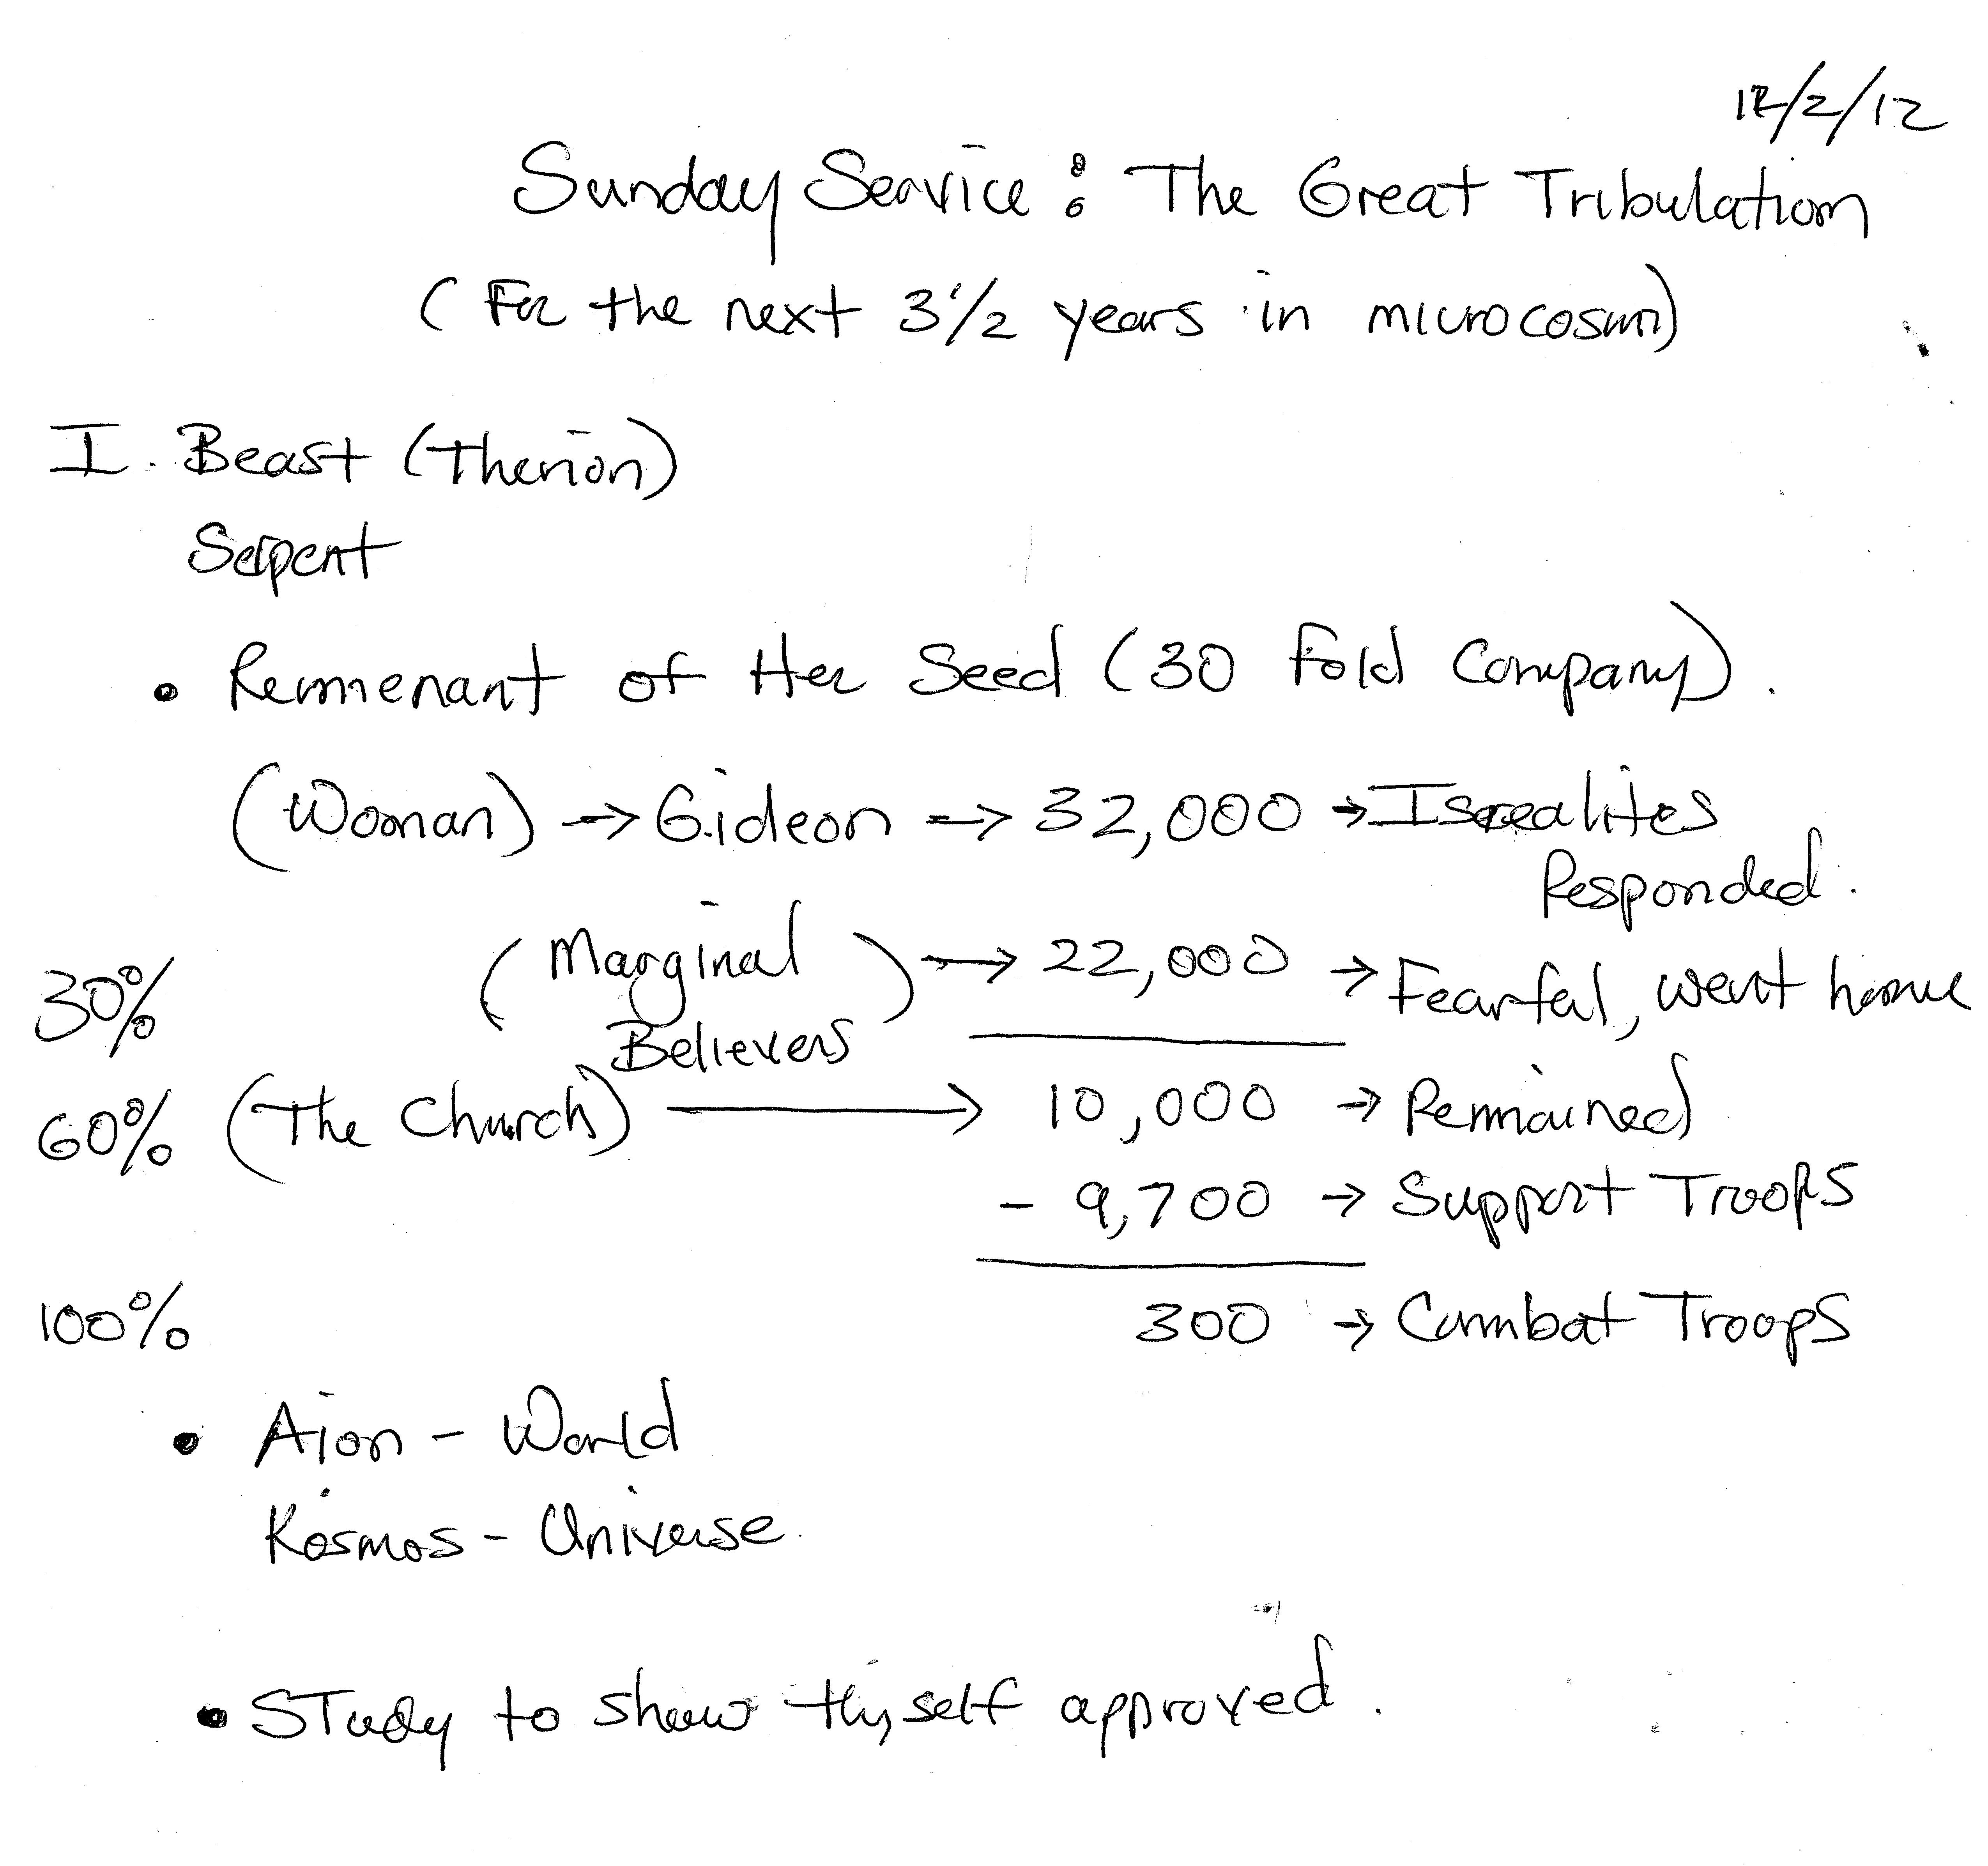 12/2/12
Sunday Service: The Great Tribulation
(For the next 3 1/2 years in microcosm)
I. Beast (Therion)
Serpent
• Remmenant of Her Seed (30 Fold Company).
(Woman) → Gideon → 32,000 → Isrealites
Responded.
30% (Marginal Believers) → 22,000 → Fearful, went home
60% (The Church) → 10,000 → Remained
- 9,700 → Support Troops
100% 300 → Combat Troops
• Aion - World
Kosmos - Universe.
• STudy to show thyself approved.